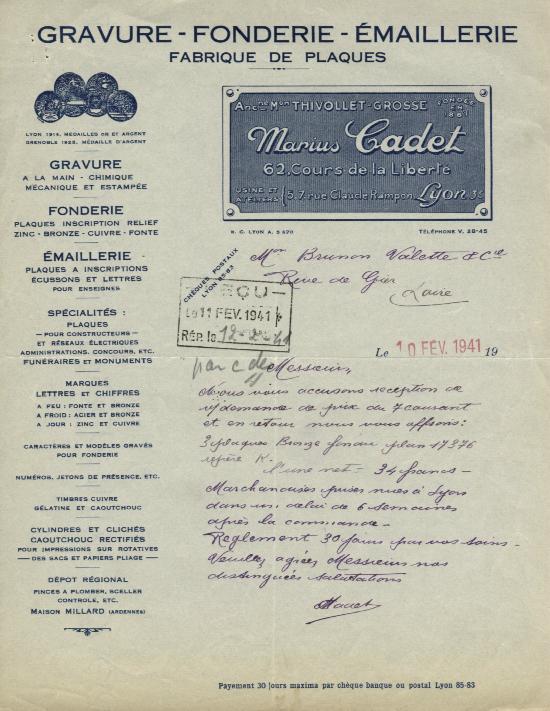 GRAVURE - FONDERIE - ÉMAILLERIE
FABRIQUE DE PLAQUES
LYON 1914, MÉDAILLES OR ET ARGENT
GRENOBLE 1925, MÉDAILLE D'ARGENT
GRAVURE
A LA MAIN - CHIMIQUE
MÉCANIQUE ET ESTAMPÉE
FONDERIE
PLAQUES INSCRIPTION RELIEF
ZINC - BRONZE - CUIVRE - FONTE
ÉMAILLERIE
PLAQUES A INSCRIPTIONS
ÉCUSSONS ET LETTRES
POUR ENSEIGNES
SPÉCIALITÉS :
PLAQUES
POUR CONSTRUCTEURS
ET RÉSEAUX ÉLECTRIQUES
ADMINISTRATIONS, CONCOURS, ETC.
FUNÉRAIRES ET MONUMENTS
MARQUES
LETTRES ET CHIFFRES
A FEU : FONTE ET BRONZE
A FROID : ACIER ET BRONZE
A JOUR : ZINC ET CUIVRE
CARACTÈRES ET MODÈLES GRAVÉS
POUR FONDERIE
NUMÉROS, JETONS DE PRÉSENCE, ETC.
TIMBRES CUIVRE
GÉLATINE ET CAOUTCHOUC
CYLINDRES ET CLICHÉS
CAOUTCHOUC RECTIFIÉS
POUR IMPRESSIONS SUR ROTATIVES
DES SACS ET PAPIERS PLIAGE
DÉPOT RÉGIONAL
PINCES A PLOMBER, SCELLER
CONTROLE, ETC.
MAISON MILLARD (ARDENNES)
Ancne Mon THIVOLLET-GROSSE
FONDÉE EN 1861
Marius Cadet
62, Cours de la Liberté
USINE ET ATELIERS 5.7, rue Claude Rampon, Lyon 3e
R. C. LYON A. 5 620
TÉLÉPHONE V. 28-45
CHÈQUES POSTAUX
LYON 85-83
Mon Brunon Valette & Cie
Rive de Gier
Loire
REÇU
Le 11 FEV. 1941
RÉP. le 12-2-41
par c de
Le 10 FEV. 1941 19
Messieurs,
Nous vous accusons réception de
v/demande de prix du 7 courant
et en retour nous vous offrons :
3 plaques Bronze fondu plan 17376
repère K.
L'une net - 34 francs -
Marchandises prises nues à Lyon
dans un délai de 6 semaines
après la commande -
Règlement 30 jours par vos soins -
Veuillez agréer Messieurs nos
distinguées salutations
MCadet
Payement 30 jours maxima par chèque banque ou postal Lyon 85-83